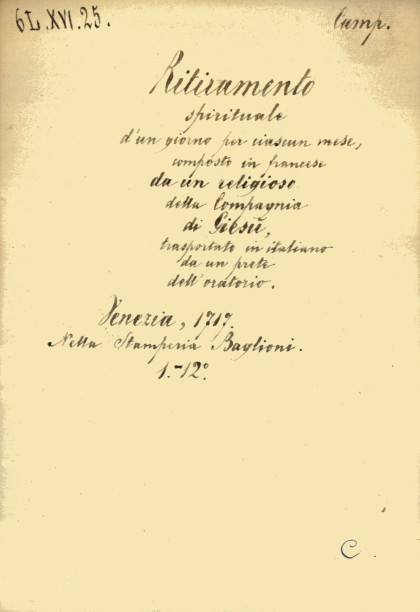 6L.XVI.25. Camp.
Ritiramento
spirituale
d'un giorno per ciascun mese,
composto in francese
da un religioso
della Compagnia
di Giesù,
trasportato in italiano
da un prete
dell'oratorio.
Venezia, 1717.
Nella Stamperia Baglioni.
1.-12°.
C.